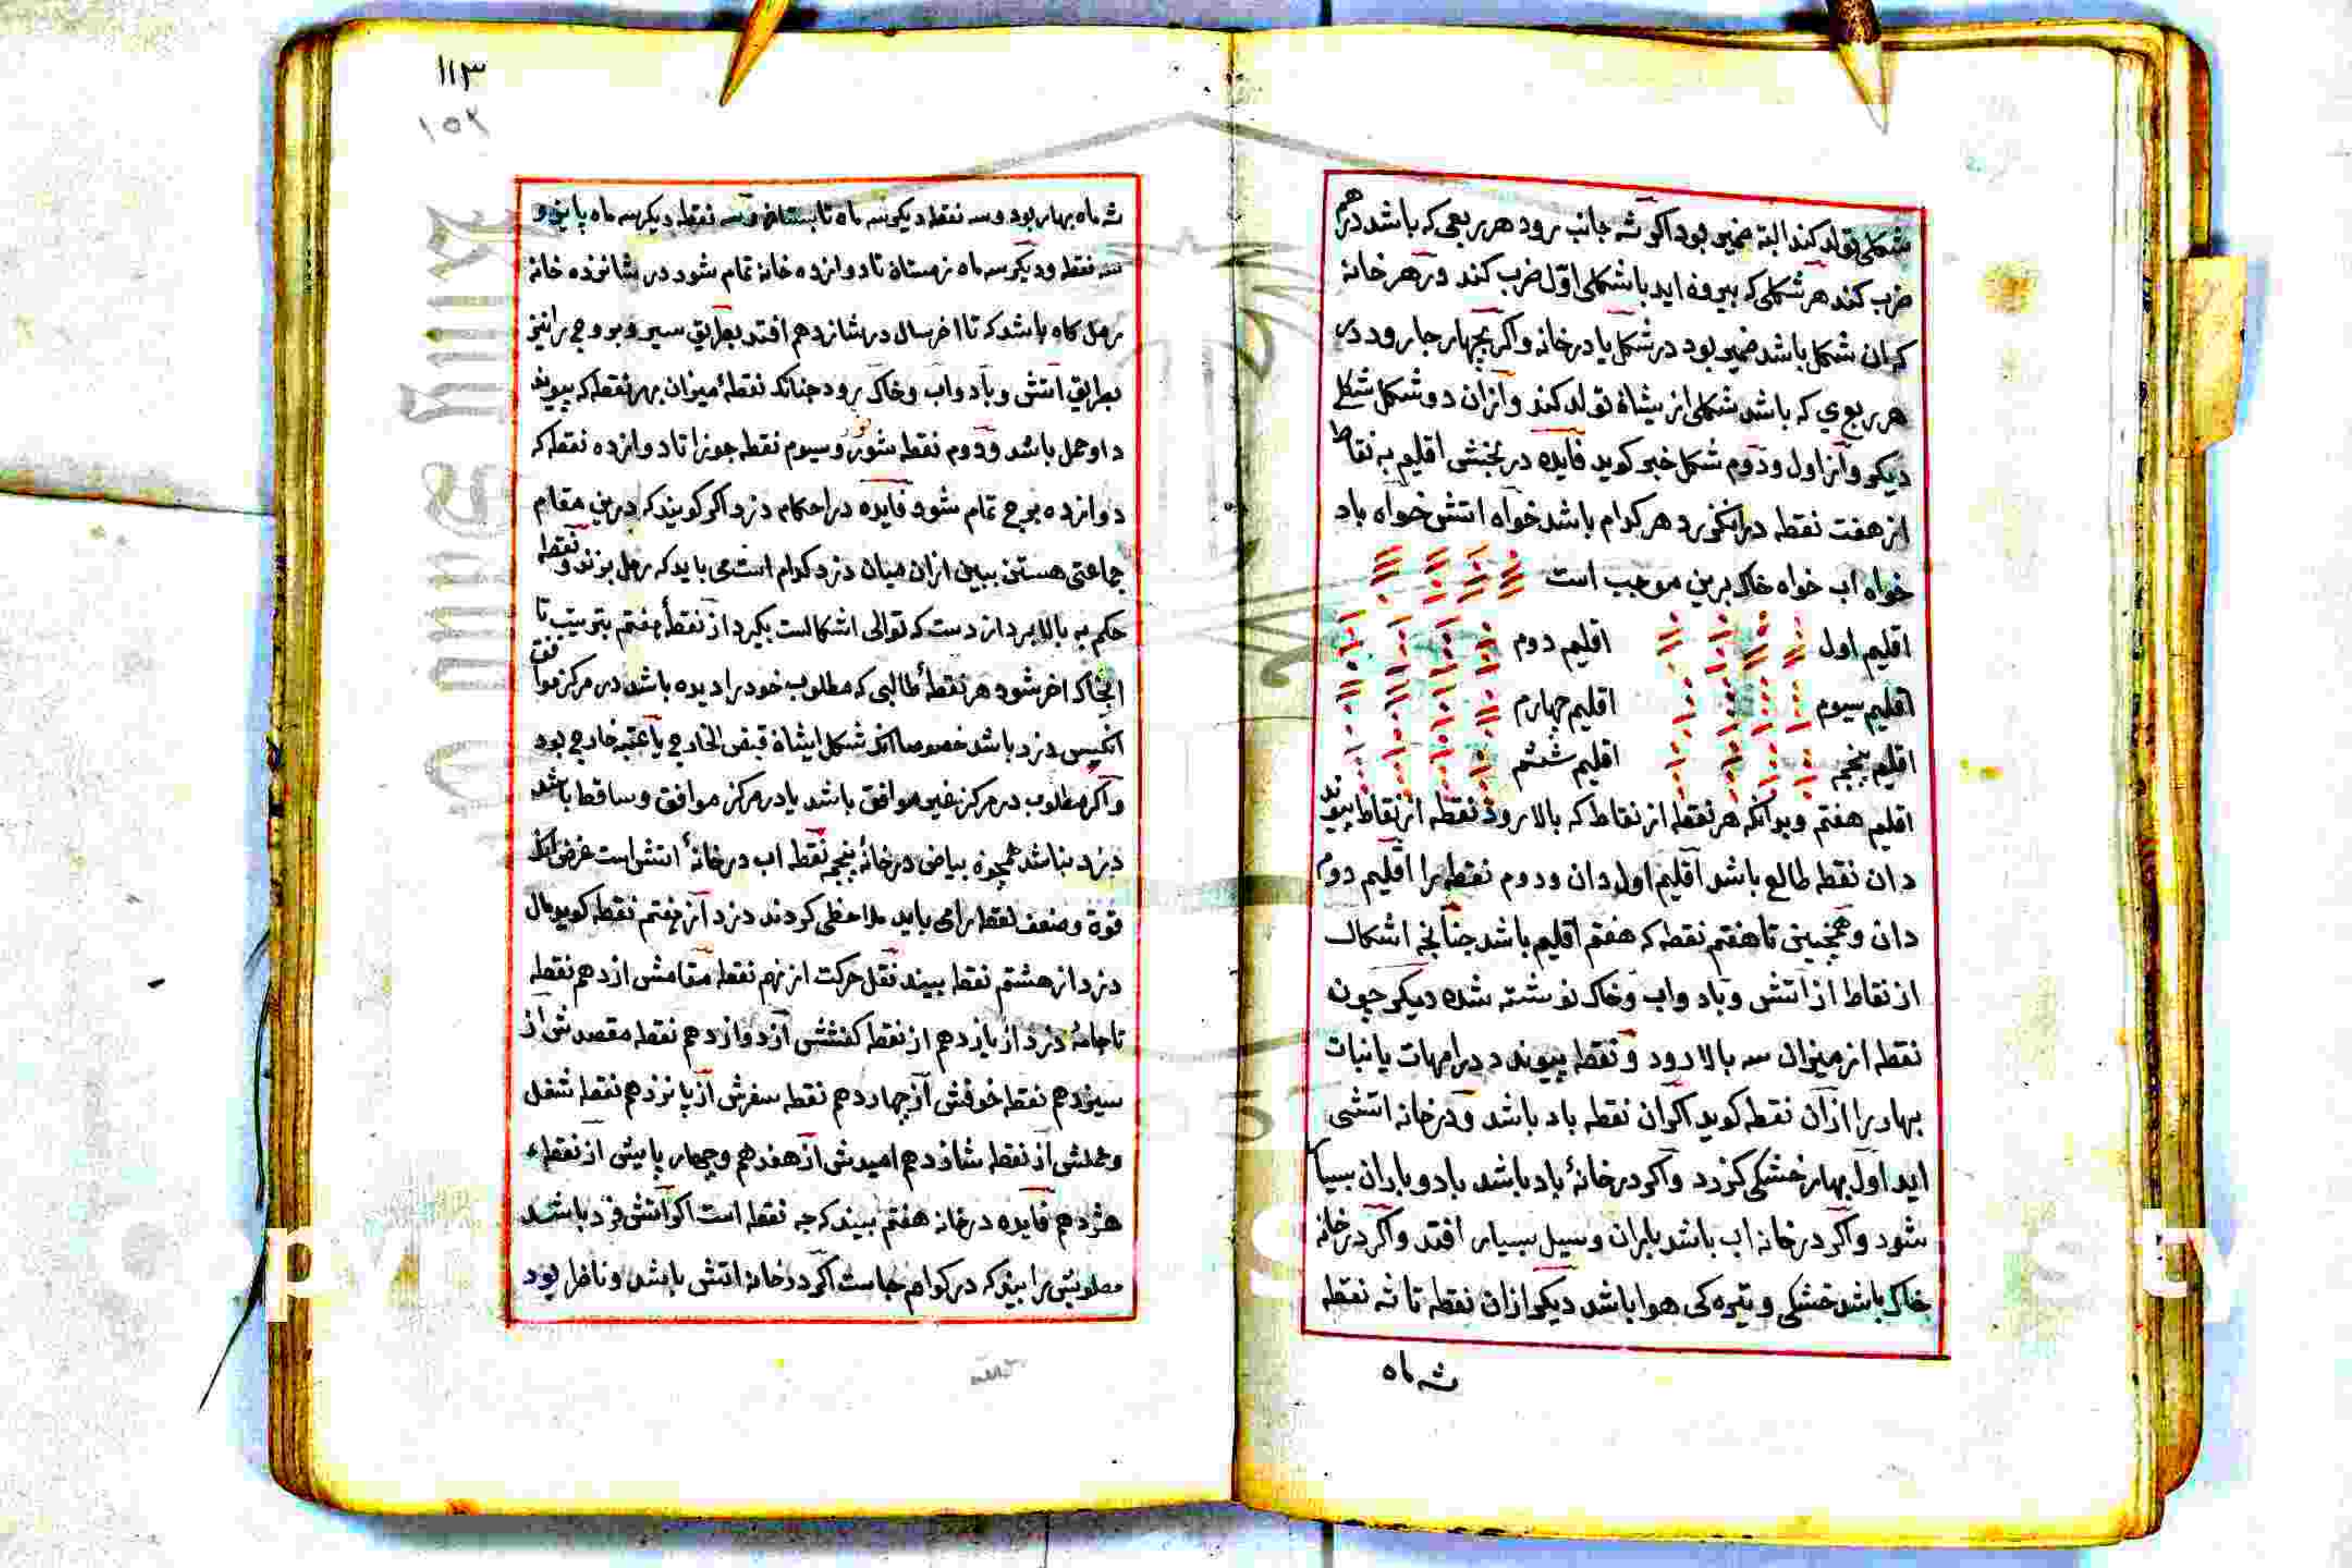 شکلی تولد کند البته ضمیر بود اکر شه جانب رود هر ربعی که باشد در هم
ضرب کند هر شکلی که بیرون اید با شکلی اول ضرب کند و در هر خانه
که ان شکل باشد ضمیر بود در شکل یا در خانه و اکر بجهار جا رود در
هر ربع ی که باشد شکلی از یشاة تولد کند و از ان دو شکل شکلی
دیکر و از اول و دوم شکل خبر کوید فایده در بخشی اقلیم به نقاط
از هفت نقطه در نکیرد هر کدام باشد خواه اتش خواه باد
خواه اب خواه خاک برین موجب است
اقلیم اول اقلیم دوم
اقلیم سیوم اقلیم جهارم
اقلیم پنجم اقلیم ششم
اقلیم هفتم و بدانکه هر نقطه از نقاط که بالا رود نقطه از نقاط پیوند
دان نقط طالع باشد اقلیم اول دان و دوم نقطه را اقلیم دوم
دان و همچنین تا هفتم نقطه که هفتم اقلیم باشد جنانچه اشکال
از نقاط از اتش و باد و اب و خاک نوشته شده دیکر جون
نقطه از میزان سه بالا رود و نقطه پیوندد در امهات یا نبات
بهار را از ان نقطه کوید اکر ان نقطه باد باشد و در خانه اتشی
اید اول بهار خشکی کزرد و اکر در خانهٔ باد باشد باد و باران بسیا
شود و اکر در خانه اب باشد باران و سیل بسیار افتد و اکر در خانه
خاک باشد خشکی و تیره کی هوا باشد دیکر از ان نقطه تا شه نقطه
شه ماه
۱۱۳
۱۵۲
شه ماه بهار بود و سه نقطه دیکر سه ماه تابستان و سه نقطه دیکر سه ماه پاییز و
سه نقطه و دیکر سه ماه زمستان تا دوازده خانه تمام شود در شانزده خانهٔ
رمل کاه باشد که تا اخر سال در شازدهم افتد بطریق سیر و بروجی را نیز
بطریق اتش و باد و اب و خاک رود جنانکه نقطهٔ میزان بهر نقطه که پیوند
د او حمل باشد و دوم نقطه ثور و سیوم نقطه جوزا تا دوازده نقطه که
دوازده برج تمام شود فایده در احکام دزد اکر کویند که درین مقام
جماعتی هستن ببین از ان میان دزد کدام است می باید که رمل بزند و نقطه
حکم به بالا برد از دست که توالی اشکالست بکیرد از نقطهٔ هفتم بترتیب تا
انجاکه اخر شود هر نقطهٔ طالبی که مطلوب خود را دیده باشد در مرکز موافق
انکیس دزد باشد خصوصا انکه شکل ایشاة قبض الخارج یا عتبه خارج بود
و اکر مطلوب در مرکز غیر موافق باشد یا در مرکز موافق و ساقط باشد
دزد نباشد همچوه بیاض در خانهٔ پنجم نقطه اب در خانهٔ اتشی است غرض انکه
قوة و ضعف نقطه را می باید ملاحظی کردند دزد از هفتم نقطه کوید مال
دزد از هشتم نقطه ببیند نقل حرکت از نهم نقطه مقامش از دهم نقطه
تا جامهٔ دزد از یازدهم از نقطه کفشش از دوازدهم نقطه مقصدش از
سیزدهم نقطه خوفش از چهاردهم نقطه سفرش از پانزدهم نقطه شغل
و عملش از نقطه شازدهم امیدش از هفدهم و چهار پایش از نقطهء
هژدهم فایده در خانه هفتم ببیند که جه نقطه است اکر اتش فرد باشد
مطلوبش را ببیند که در کدام جاست اکر در خانه اتش باشد و ناظر بود